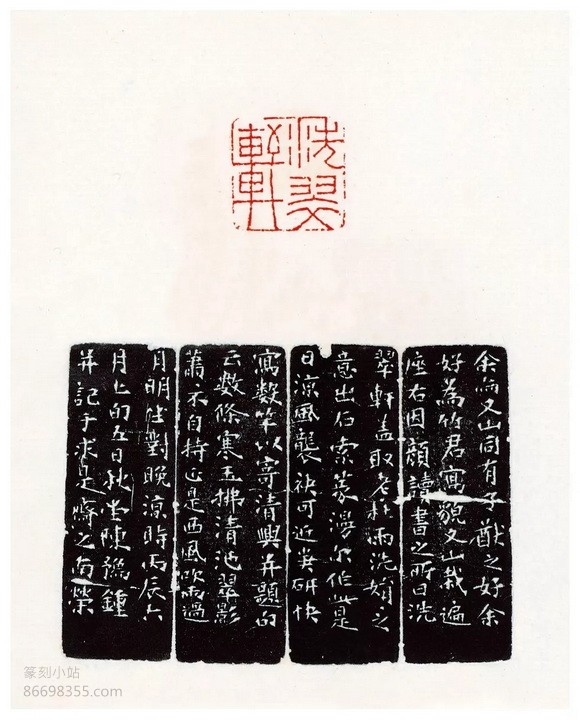 洗翠
軒
余與又山同有子猷之好余
好為竹君寫貌又山栽遍
座右因顏讀書之所曰洗
翠軒蓋取老杜雨洗娟々之
意出石索篆漫尔作此是
日涼風襲袂可近筆研快
寫數竿以寄清興并題句
云數條寒玉拂清池翠影
蕭々不自持正是西風吹雨過
月明徃對晚涼時丙辰六
月上旬五日秋堂陳豫鍾
并記于求是齋之南榮
篆刻小站
86698355.com